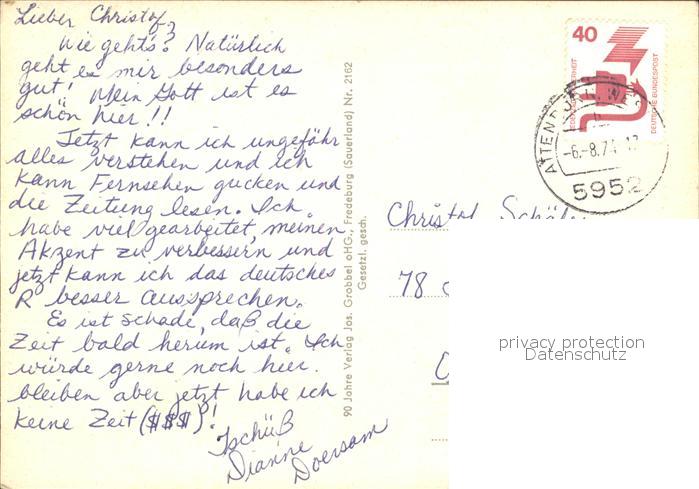 Lieber Christof,
Wie gehts? Natürlich
geht es mir besonders
gut! Mein Gott ist es
schön hier!!
Jetzt kann ich ungefähr
alles verstehen und ich
kann Fernsehen gucken und
die Zeitung lesen. Ich
habe viel gearbeitet, meinen
Akzent zu verbessern und
jetzt kann ich das deutsches
R besser aussprechen.
Es ist schade, daß die
Zeit bald herum ist. Ich
würde gerne noch hier
bleiben aber jetzt habe ich
keine Zeit ($$$)!
Tschüß
Dianne
Doersam
90 Jahre Verlag Jos. Grobbel oHG., Fredeburg (Sauerland) Nr. 2162
Gesetzl. gesch.
40
DEUTSCHE BUNDESPOST
-6.-8.74
5952
Christof
78
privacy protection
Datenschutz